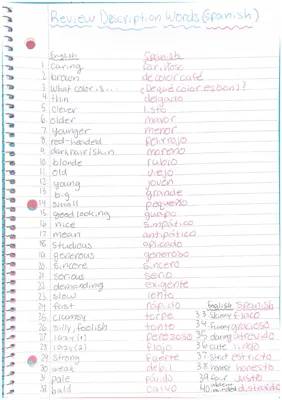 Review Description Words (Spanish)
English Spanish
1 caring cariñoso
2 brown de color café
3 What color is... ¿De qué color es(son)?
4 thin delgado
5 clever listo
6 older mayor
7 younger menor
8 red-headed pelirrojo
9 dark hair/skin moreno
10 blonde rubio
11 old viejo
12 young joven
13 big grande
14 small pequeño
15 good looking guapo
16 nice simpático
17 mean antipático
18 studious aplicado
19 generous generoso
20 sincere sincero
21 serious serio
22 demanding exigente
23 slow lento
24 fast rápido
25 clumsy torpe
26 silly, foolish tonto
27 lazy (1) perezoso
28 lazy (2) flojo
29 strong fuerte
30 weak débil
31 pale pálido
32 bald calvo
English Spanish
33 skinny flaco
34 funny gracioso
35 daring atrevido
36 cute lindo
37 strict estricto
38 honest honesto
39 fair justo
40 distraído